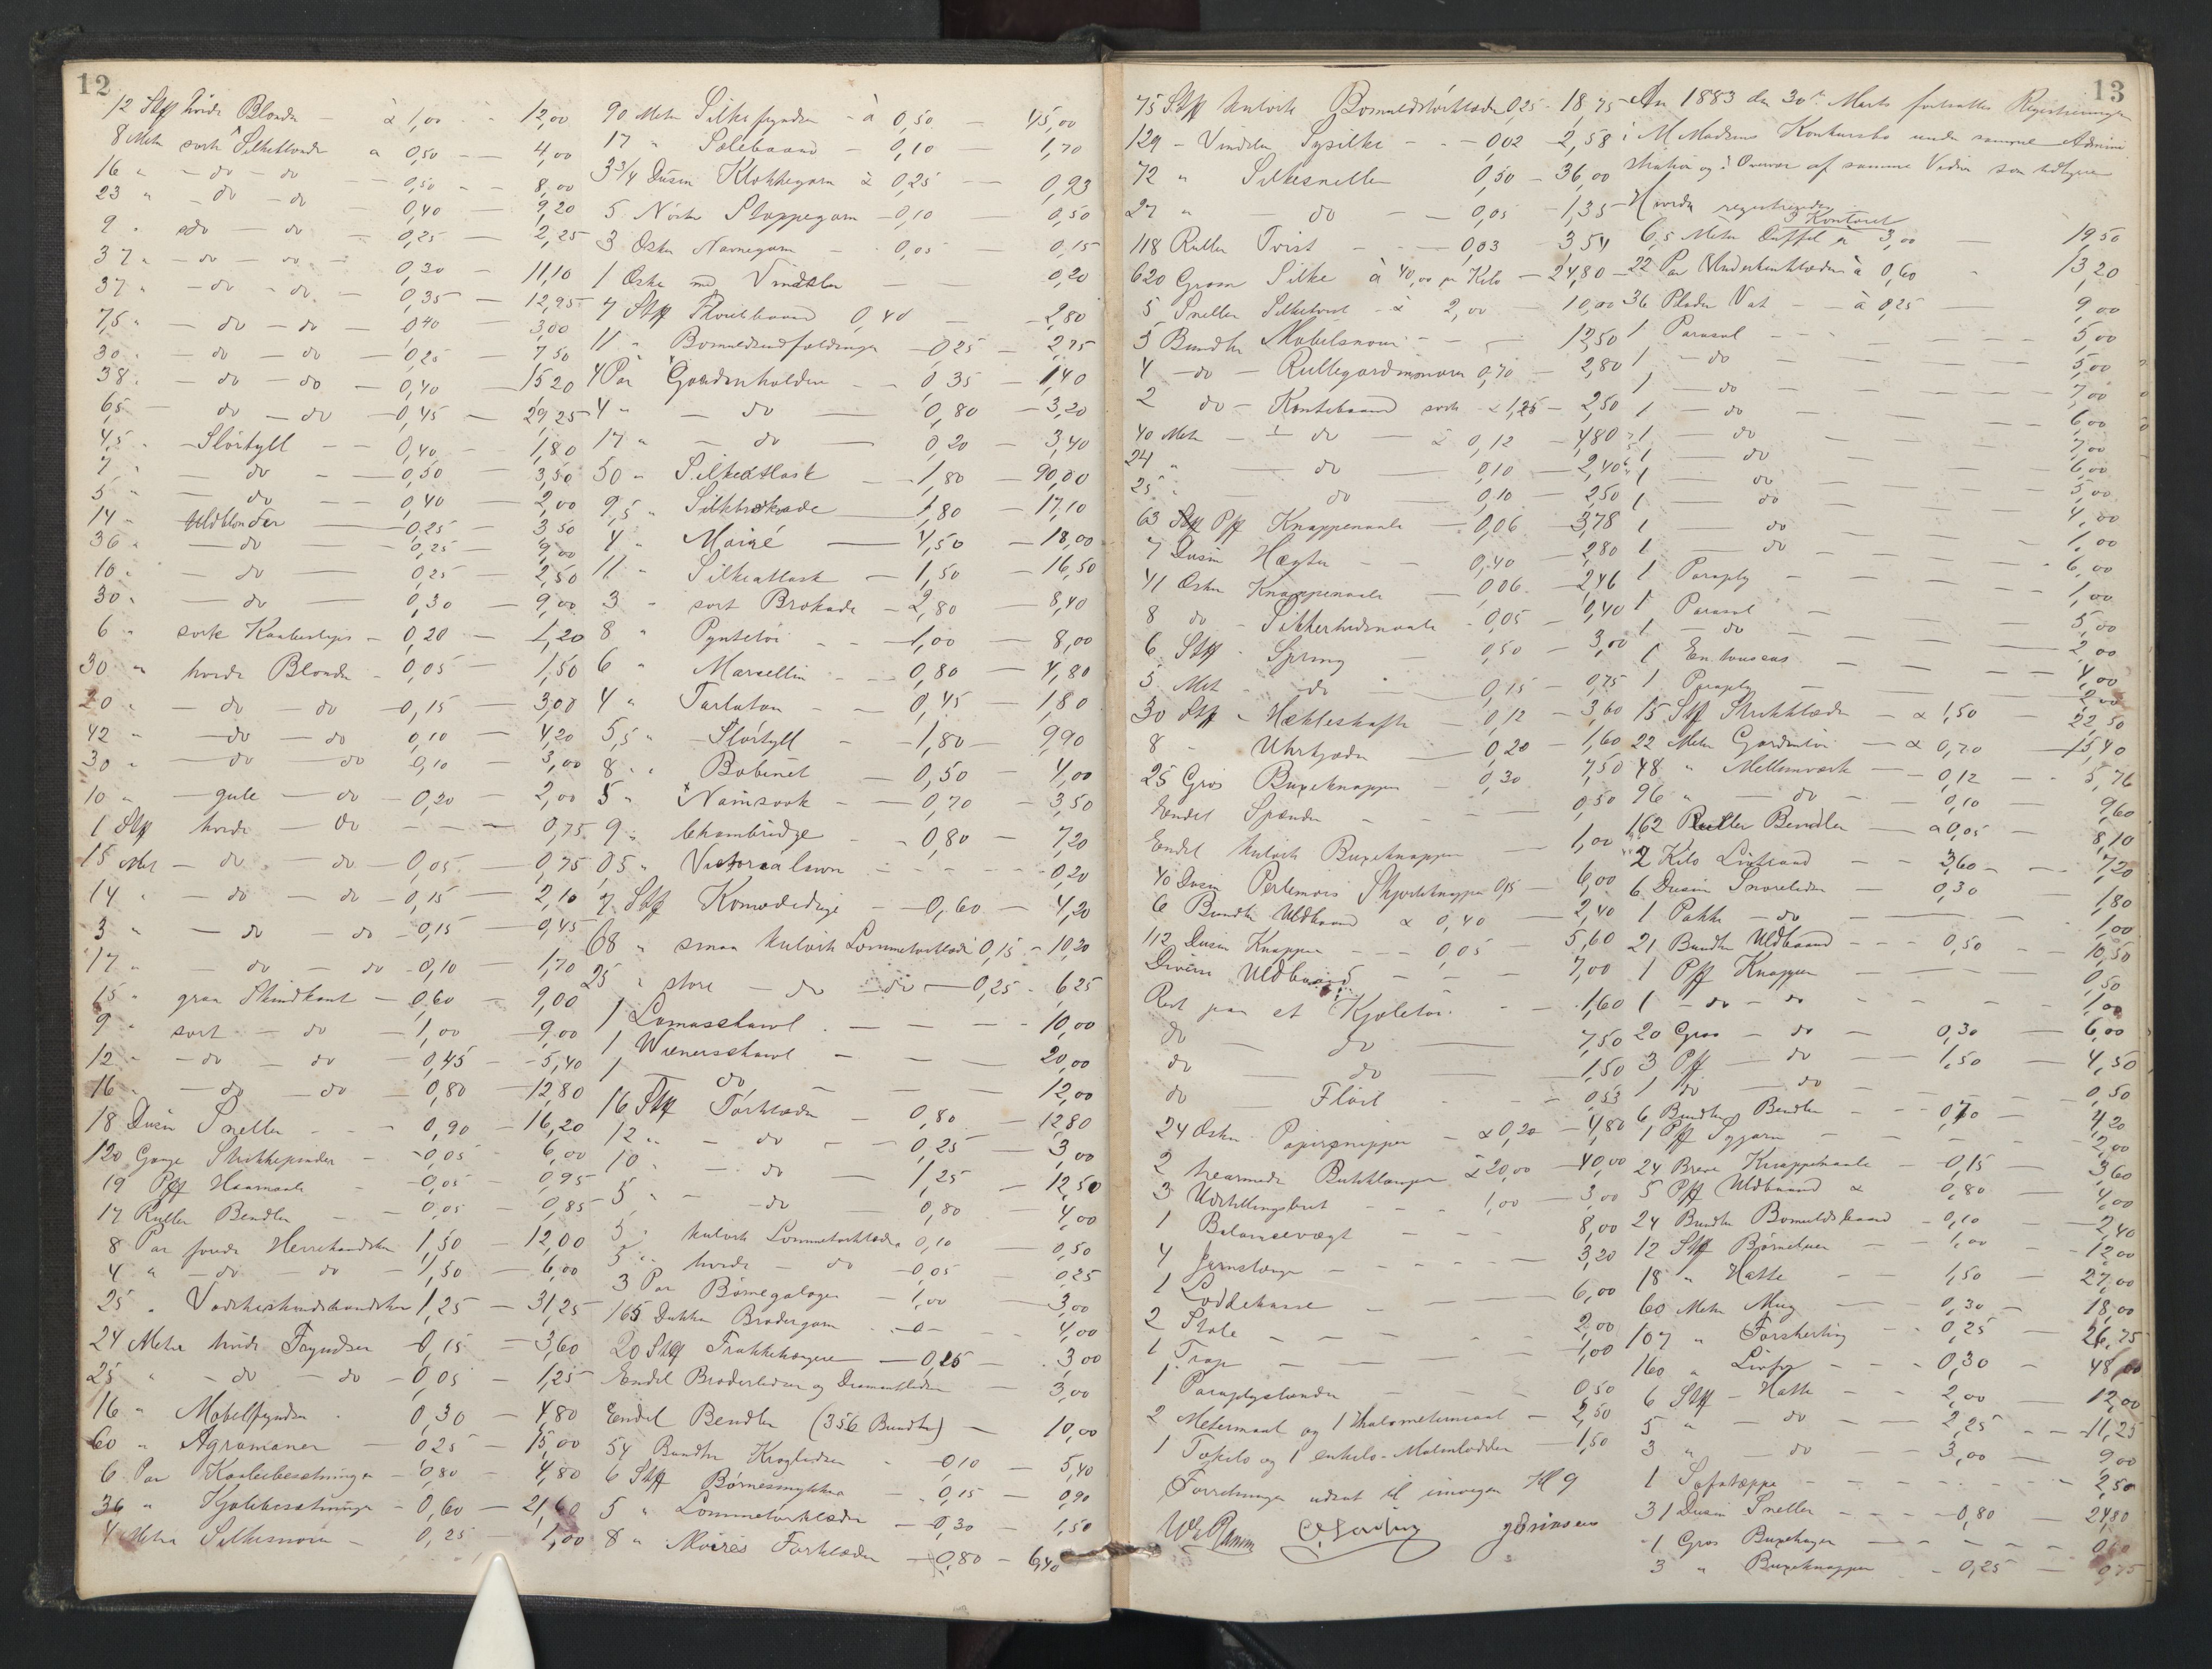 12
12 Stk hvide Blonder - à 1,00 - 12,00
8 Meter sort Silkeblonde a 0,50 - 4,00
16 " - do - do - 0,50 - 8,00
23 " - do - do - 0,40 - 9,20
9 " - do - do - 0,25 - 2,25
37 " - do - do - 0,30 - 11,10
37 " - do - do - 0,35 - 12,95
7,5 " - do - do - 0,40 - 3,00
30 " - do - do - 0,25 - 7,50
38 " - do - do - 0,40 - 15,20
65 " - do - do - 0,45 - 29,25
4,5 " - Slörtyll - 0,40 - 1,80
7 " - do - 0,50 - 3,50
5 " - do - 0,40 - 2,00
14 " Uldblonder - 0,25 - 3,50
36 " - do - 0,25 - 9,00
10 " - do - 0,25 - 2,50
30 " - do - 0,30 - 9,00
6 " sorte Kaabeslips - 0,20 - 1,20
30 " hvide Blonder - 0,05 - 1,50
20 " - do - do - 0,15 - 3,00
42 " - do - do 0,10 - 4,20
30 " - do - do - 0,10 - 3,00
10 " - gule - do - 0,20 - 2,00
1 Stk hvide - do - - 0,75
15 Met - do - do - 0,05 - 0,75
14 " - do - do - 0,15 - 2,10
3 " - do - do - 0,15 - 0,45
17 " - do - do - 0,10 - 1,70
15 " graa Skindkant - 0,60 - 9,00
9 " sort - do - 1,00 - 9,00
12 " - do - do - 0,45 - 5,40
16 " - do - do 0,80 - 12,80
18 Dusin Sneller - - 0,90 - 16,20
120 Gange Strikkepinder - 0,05 - 6,00
19 Pk Haarnaale - 0,05 - 0,95
17 Ruller Bendler - - 0,05 - 0,85
8 Par forede Herrehandsker 1,50 - 12,00
4 " - do - do - 1,50 - 6,00
25 " Vadskeskindshandsker 1,25 - 31,25
24 Meter hvide Fryndser - 0,15 - 3,60
25 " - do - do - 0,05 - 1,25
16 " Møbelfrynder - 0,30 - 4,80
60 " Agramaner - 0,25 - 15,00
6 Par Kaabebesætninger - 0,80 - 4,80
36 " Kjolebesætninger - 0,60 - 21,60
4 Meter Silkesnore - 0,25 - 1,00
90 Meter Silkefrynder - à 0,50 - 45,00
17 " Solebaand - 0,10 - 1,70
3 3/4 Dusin Klokkegarn à 0,25 - 0,93
5 Nöster Stoppegarn - 0,10 - 0,50
3 Æsker Navnegarn - 0,05 - 0,15
1 Æske med Vindsler - - 0,20
7 Stk Flöielbaand 0,40 - 2,80
11 " Bomuldsindfoldninger - 0,25 - 2,75
4 Par Gardinholdere - 0,35 - 1,40
4 " - do - 0,80 - 3,20
17 " - do - 0,20 - 3,40
50 " Silkeatlask - 1,80 - 90,00
9,5 " Silkebrokade - 1,80 - 17,10
4 " Moiré - 4,50 - 18,00
11 " Silkeatlask - 1,50 - 16,50
3 " sort Brokade - 2,80 - 8,40
8 " Pyntetöi - 1,00 - 8,00
6 " Marsellin - 0,80 - 4,80
4 " Tarlatan - 0,45 - 1,80
5,5 " Slörtyll - 1,80 - 9,90
8 " Bobinet - 0,50 - 4,00
5 " Nainsook - 0,70 - 3,50
9 " Chambridge - 0,80 - 7,20
0,5 " Victoria lawn - - 0,20
7 Stk Komodeduge - 0,60 - 4,20
68 " smaa kulörte Lommetörklæder 0,15 - 10,20
25 " store - do - do - 0,25 - 6,25
1 Lamaschawl - - - 10,00
1 Wienerschawl - - 20,00
1 do - - 12,00
16 Stk Törklæder - 0,80 - 12,80
12 " - do - 0,25 - 3,00
10 " - do - 1,25 - 12,50
5 " - do - 0,80 - 4,00
5 " kulörte Lommetørklæder 0,10 - 0,50
5 " hvide - do - 0,05 - 0,25
3 Par Börnegaloger - 1,00 - 3,00
165 Dukker Brodergarn - a - 4,00
20 Stk Frakkehængere - 0,15 - 3,00
Endel Broderlidser og Diamantlidser - 3,00
Endel Bendler (356 Bundter) - 10,00
54 Bundter Kroglidser - 0,10 - 5,40
6 Stk Börnesmykker - 0,15 - 0,90
5 " Lommetörklæder - 0,30 - 1,50
8 " Moirés Forklæder - 0,80 - 6,40
13
75 Stk kulörte Bomuldstörklæder 0,25 - 18,75
129 - Vindsler Sysilke - - 0,02 - 2,58
72 " Silkesneller 0,50 - 36,00
27 " - do - - 0,05 - 1,35
118 Ruller Tvist - - 0,03 3,54
620 Gram Silke à 40,00 pr Kilo - 24,80
5 Sneller Silketvist - à 2,00 - 10,00
5 Bundter Møbelsnore - - 12,50
4 - do - Rullegardinsnore 0,70 - 2,80
2 do - Kantebaand sorte à 1,25 - 2,50
40 Met - do - à 0,12 - 4,80
24 " do 0,10 - 2,40
25 " do 0,10 - 2,50
63 Pk Knappenaale - 0,06 - 3,78
7 Dusin Hægter - - 0,40 - 2,80
41 Æsker Knappenaale - 0,06 - 2,46
8 do - Sikkerhedsnaale - 0,05 - 0,40
6 Stk - Spring 0,50 - 3,00
5 Met - do - 0,15 - 0,75
30 Stk - Hækleskafte - 0,12 - 3,60
8 - Uhrkjæder - 0,20 - 1,60
25 Gros Buxeknapper - 0,30 7,50
Endel Spænder - - - 0,50
Endel kulörte Buxeknapper - 1,00
40 Dusin Perlemors Skjorteknapper 0,15 - 6,00
6 Bundter Uldbaand à 0,40 - 2,40
112 Dusin Knapper - - 0,05 - 5,60
Diverse Uldbaand - - - 7,00
Rest paa et Kjoletöi - - 1,60
do do - 7,50
do do - 1,50
do Flöiel - 0,53
24 Æsker Papirsnipper - à 0,20 - 4,80
2 trearmede Butiklamper à 20,00 - 40,00
3 Udstillingsbret - - 1,00 - 3,00
1 Balancevægt - - 8,00
4 Jernstænger - - - 3,20
1 Loddekasse - - 6,00
2 Stole - - - 2,00
1 Trap - - - 1,00
1 Paraplystander - - 0,50
2 Metermaal og 1 halvmetermaal - 2,50
1 Tokilo og 1 enkilo-Malmlodder - 1,50
Forretningen udsat til imorgen Kl 9
Aar 1883 den 30te Marts fortsattes Registreringen
i M Madsens Konkursbo under samme Admini
stration og i Overvær af samme Vidner som tidligere
Hvorda registreredes
I Kontoret
6,5 Meter Duffel à 3,00 - 19,50
22 Par Underbenklæder à 0,60 - 13,20
36 Plader Vat - à 0,25 - 9,00
1 Parasol - - 5,00
1 - do - - 5,00
1 - do - - 7,00
1 - do - - 6,00
1 - do - - 7,00
1 - do - - 6,00
1 - do - - 5,00
1 - do - - 4,00
1 - do - - 1,00
1 - do - - 6,00
1 Paraply - - 1,00
1 Parasol - - 5,00
1 - do - - 2,00
1 En tous cas - - 4,00
1 Paraply - - 2,00
15 Stk Strikklæder - à 1,50 - 22,50
22 Meter Gardintöi - à 0,70 - 15,40
48 " Mellemværk - 0,12 - 5,76
96 " - do - 0,10 - 9,60
162 Ruller Bendler - à 0,05 - 8,10
2 Kilo Livbaand - 3,60 - 7,20
6 Dusin Snorelidser - 0,30 - 1,80
1 Pakke - do - - 1,00
21 Bundter Uldbaand - - 0,50 - 10,50
1 Pk Knapper - - 0,50
1 - do - do - - 1,00
20 Gros - do - 0,30 - 6,00
3 Pk - do - 1,50 - 4,50
1 do - do - - 0,50
6 Bundter Bendler - - 0,70 - 4,20
1 Pk Sygarn - - 2,00
24 Breve Knappenaale - 0,15 - 3,60
5 Pk Uldbaand à 0,80 - 4,00
24 Bundter Bomuldsbaand - 0,10 - 2,40
12 Stk Börnehuer - 1,00 - 12,00
18 " Hatte - 1,50 - 27,00
60 Meter Mug - 0,30 - 18,00
107 " Forskerting - 0,25 - 26,75
160 " Livfor - - 0,30 - 48,00
6 Stk - Hatte - - 2,00 - 12,00
5 " - do - - 2,25 - 11,25
3 " - do - 3,00 - 9,00
1 Sofatæppe - - - 2,50
31 Dusin Sneller - 0,80 - 24,80
1 Gros Buxehager - - - 0,60
3 " Buxeknapper - 0,25 - 0,75